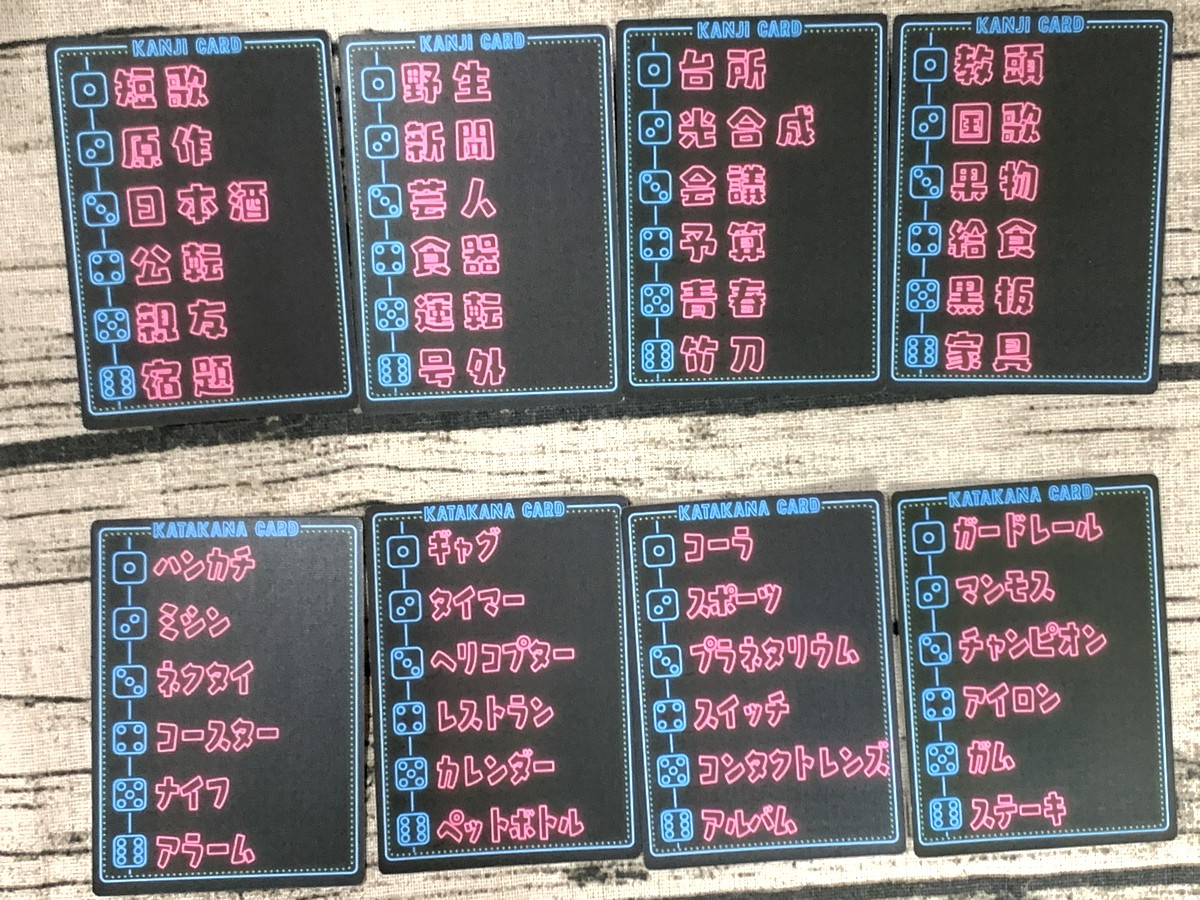 KANJI CARD
短歌
原作
日本酒
公転
親友
宿題
KANJI CARD
野生
新聞
芸人
食器
運転
号外
KANJI CARD
台所
光合成
会議
予算
青春
竹刀
KANJI CARD
教頭
国歌
果物
給食
黒板
家具
KATAKANA CARD
ハンカチ
ミシン
ネクタイ
コースター
ナイフ
アラーム
KATAKANA CARD
ギャグ
タイマー
ヘリコプター
レストラン
カレンダー
ペットボトル
KATAKANA CARD
コーラ
スポーツ
プラネタリウム
スイッチ
コンタクトレンズ
アルバム
KATAKANA CARD
ガードレール
マンモス
チャンピオン
アイロン
ガム
ステーキ